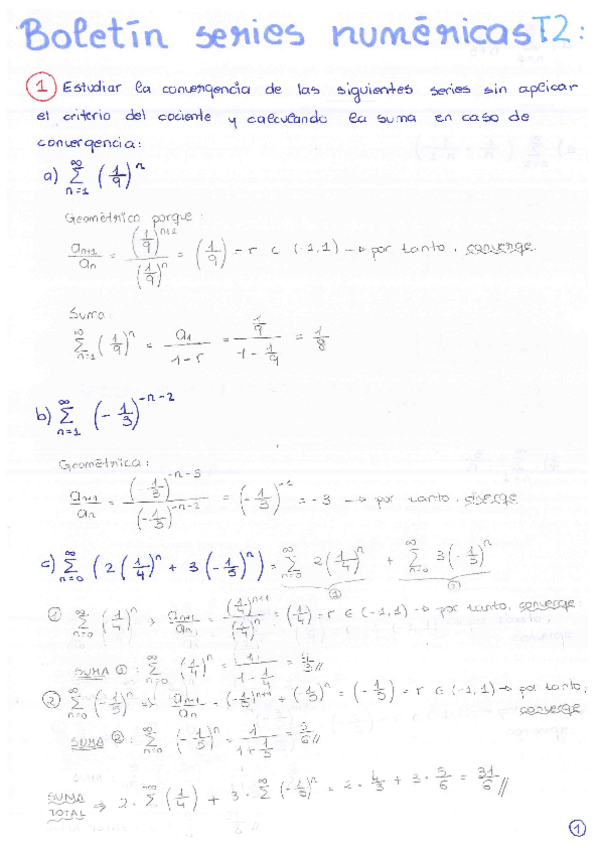 Boletín series numéricas T2:
① Estudiar la convergencia de las siguientes series sin aplicar
el criterio del cociente y calculando la suma en caso de
convergencia:
a) ∑_{n=1}^{∞} (1/9)^n
Geométrico porque:
a_{n+1}/a_n = (1/9)^{n+1}/(1/9)^n = (1/9) = r ∈ (-1,1) → por tanto, converge.
Suma:
∑_{n=1}^{∞} (1/9)^n = a_1/(1-r) = (1/9)/(1-1/9) = 1/8
b) ∑_{n=1}^{∞} (-1/3)^{-n-2}
Geométrica:
a_{n+1}/a_n = (-1/3)^{-n-3}/(-1/3)^{-n-2} = (-1/3)^{-1} = -3 → por tanto, diverge
c) ∑_{n=0}^{∞} (2(1/4)^n + 3(-1/5)^n) = ∑_{n=0}^{∞} 2(1/4)^n + ∑_{n=0}^{∞} 3(-1/5)^n
① ②
① ∑_{n=0}^{∞} (1/4)^n → a_{n+1}/a_n = (1/4)^{n+1}/(1/4)^n = (1/4) = r ∈ (-1,1) → por tanto, converge.
SUMA ①: ∑_{n=0}^{∞} (1/4)^n = 1/(1-1/4) = 4/3 //
② ∑_{n=0}^{∞} (-1/5)^n → a_{n+1}/a_n = (-1/5)^{n+1} ÷ (-1/5)^n = (-1/5) = r ∈ (-1,1) → por tanto,
converge
SUMA ②: ∑_{n=0}^{∞} (-1/5)^n = 1/(1+1/5) = 5/6 //
SUMA TOTAL ⇒ 2·∑^{∞} (1/4) + 3·∑^{∞} (-1/5)^n = 2·4/3 + 3·5/6 = 31/6 //
①